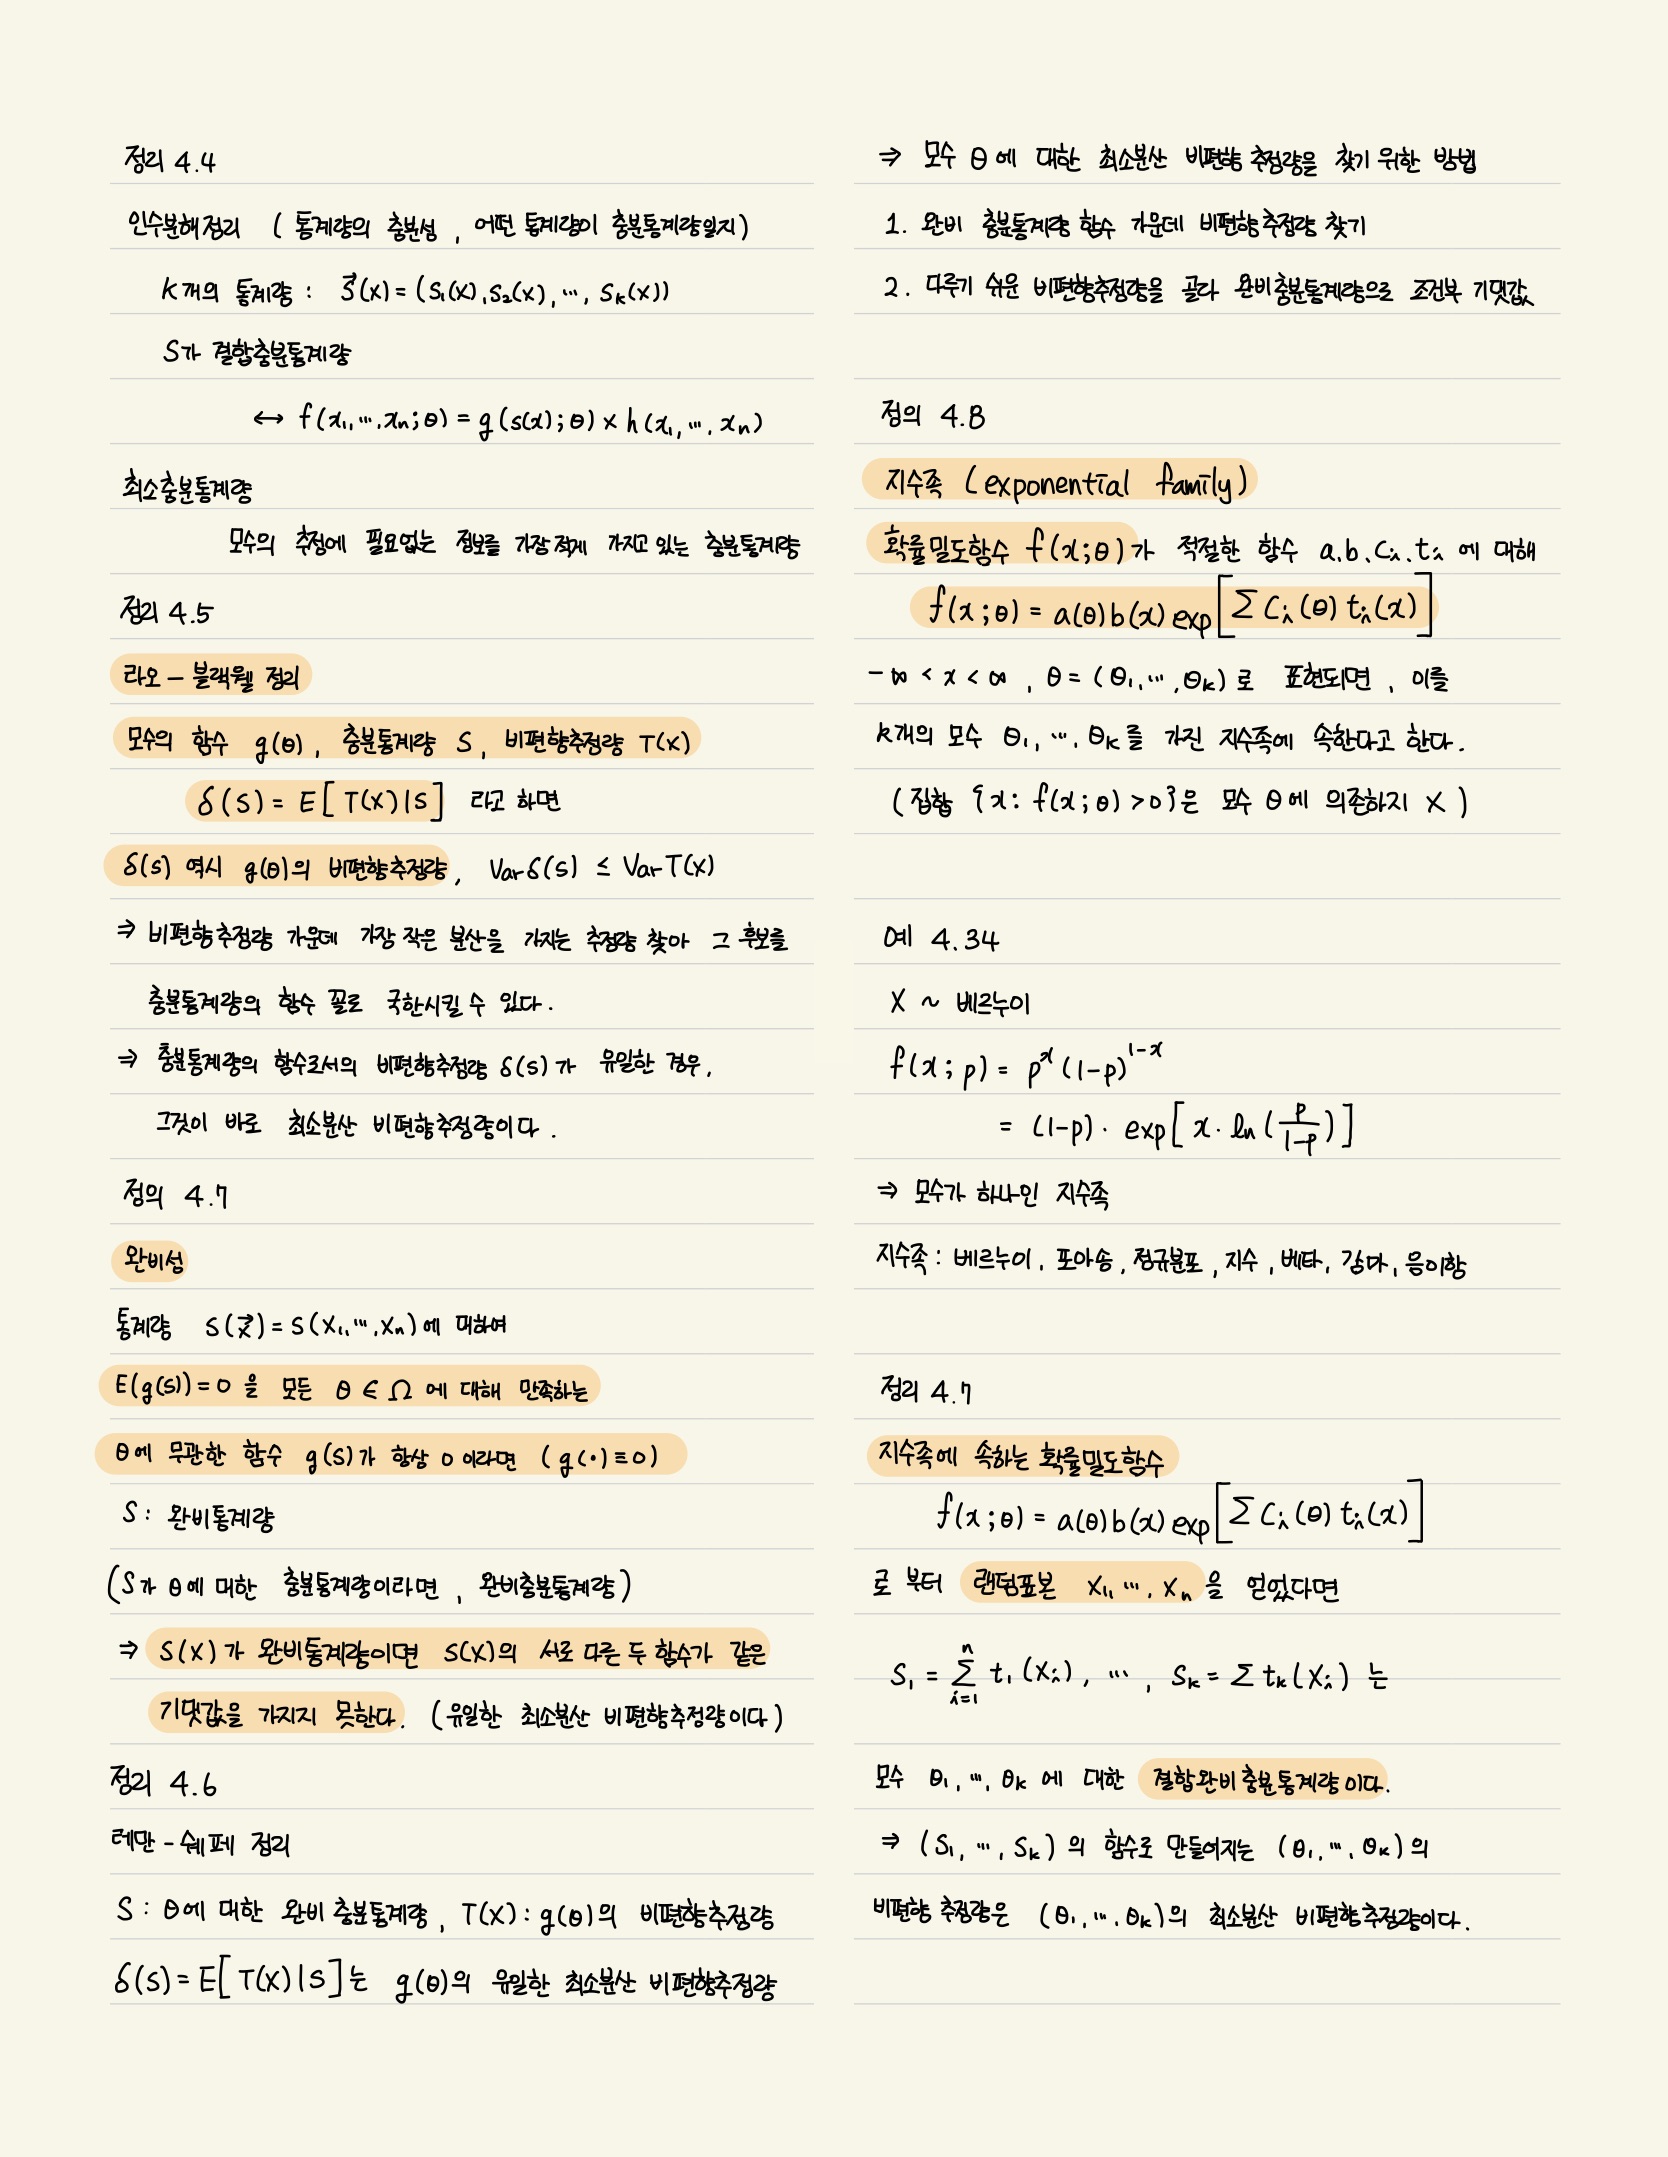 정리 4.4
인수분해정리 ( 통계량의 충분성 , 어떤 통계량이 충분통계량일지)
k개의 통계량 : S⃗(x) = (S₁(x), S₂(x), ⋯, Sₖ(x))
S가 결합충분통계량
↔ f(x₁, ⋯, xₙ; θ) = g(s(x); θ) × h(x₁, ⋯, xₙ)
최소충분통계량
모수의 추정에 필요없는 정보를 가장 적게 가지고 있는 충분통계량
정리 4.5
라오 – 블랙웰 정리
모수의 함수 g(θ), 충분통계량 S, 비편향추정량 T(x)
δ(S) = E[T(X)|S] 라고 하면
δ(s) 역시 g(θ)의 비편향추정량, Var δ(s) ≤ Var T(x)
⇒ 비편향추정량 가운데 가장 작은 분산을 가지는 추정량 찾아 그 후보를
충분통계량의 함수 꼴로 국한시킬 수 있다.
⇒ 충분통계량의 함수로서의 비편향추정량 δ(s)가 유일한 경우,
그것이 바로 최소분산 비편향추정량이다.
정의 4.7
완비성
통계량 S(x⃗) = S(X₁, ⋯, Xₙ)에 대하여
E(g(s)) = 0 을 모든 θ ∈ Ω 에 대해 만족하는
θ에 무관한 함수 g(s)가 항상 0 이라면 (g(·) ≡ 0)
S : 완비통계량
(S가 θ에 대한 충분통계량이라면 , 완비충분통계량)
⇒ S(X)가 완비통계량이면 S(X)의 서로 다른 두 함수가 같은
기댓값을 가지지 못한다. (유일한 최소분산 비편향추정량이다)
정리 4.6
레만 - 쉐페 정리
S : θ에 대한 완비 충분통계량, T(X) : g(θ)의 비편향추정량
δ(S) = E[T(X)|S]는 g(θ)의 유일한 최소분산 비편향추정량
⇒ 모수 θ에 대한 최소분산 비편향 추정량을 찾기 위한 방법
1. 완비 충분통계량 함수 가운데 비편향추정량 찾기
2. 다루기 쉬운 비편향추정량을 골라 완비충분통계량으로 조건부 기댓값
정의 4.8
지수족 (exponential family)
확률밀도함수 f(x;θ)가 적절한 함수 a.b.cᵢ.tᵢ 에 대해
f(x;θ) = a(θ)b(x) exp[Σ Cᵢ(θ) tᵢ(x)]
-∞ < x < ∞ , θ = (θ₁, ⋯, θₖ)로 표현되면 , 이를
k개의 모수 θ₁, ⋯, θₖ를 가진 지수족에 속한다고 한다.
(집합 {x: f(x;θ) > 0}은 모수 θ에 의존하지 X)
예 4.34
X ~ 베르누이
f(x; p) = pˣ(1-p)¹⁻ˣ
= (1-p) · exp[x · ln(p/(1-p))]
⇒ 모수가 하나인 지수족
지수족 : 베르누이, 포아송, 정규분포, 지수, 베타, 감마, 음이항
정리 4.7
지수족에 속하는 확률밀도함수
f(x;θ) = a(θ)b(x) exp[Σ Cᵢ(θ) tᵢ(x)]
로 부터 랜덤표본 X₁, ⋯, Xₙ을 얻었다면
S₁ = Σⁿᵢ₌₁ t₁(Xᵢ), ⋯, Sₖ = Σ tₖ(Xᵢ) 는
모수 θ₁, ⋯, θₖ 에 대한 결합완비충분통계량이다.
⇒ (S₁, ⋯, Sₖ)의 함수로 만들어지는 (θ₁, ⋯, θₖ)의
비편향 추정량은 (θ₁, ⋯, θₖ)의 최소분산 비편향추정량이다.